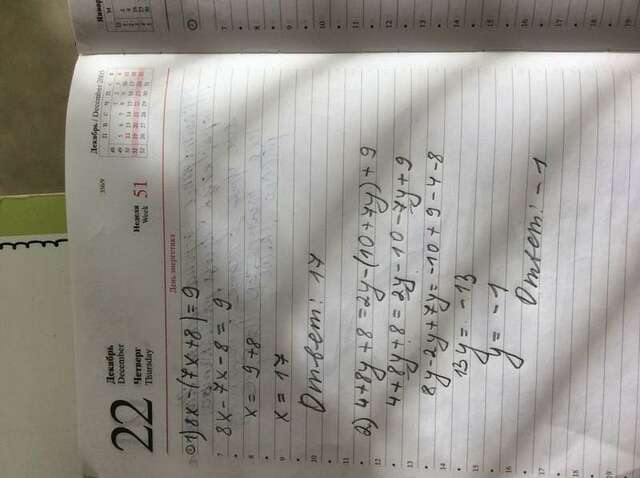 22
Декабрь
December
Четверг
Thursday
Неделя
Week
51
Декабрь / December 2005
День энергетика
1) 8x-(7x+8)=9
8x-7x-8=9
x=9+8
x=17
Ответ: 17
2) 4+8y+8=2y-(10+7y)+9
4+8y+8=2y-10-7y+9
8y-2y+7y=-10+9-4-8
13y=-13
y=-1
Ответ: -1
7
8
9
10
11
12
13
14
15
16
17
18
19